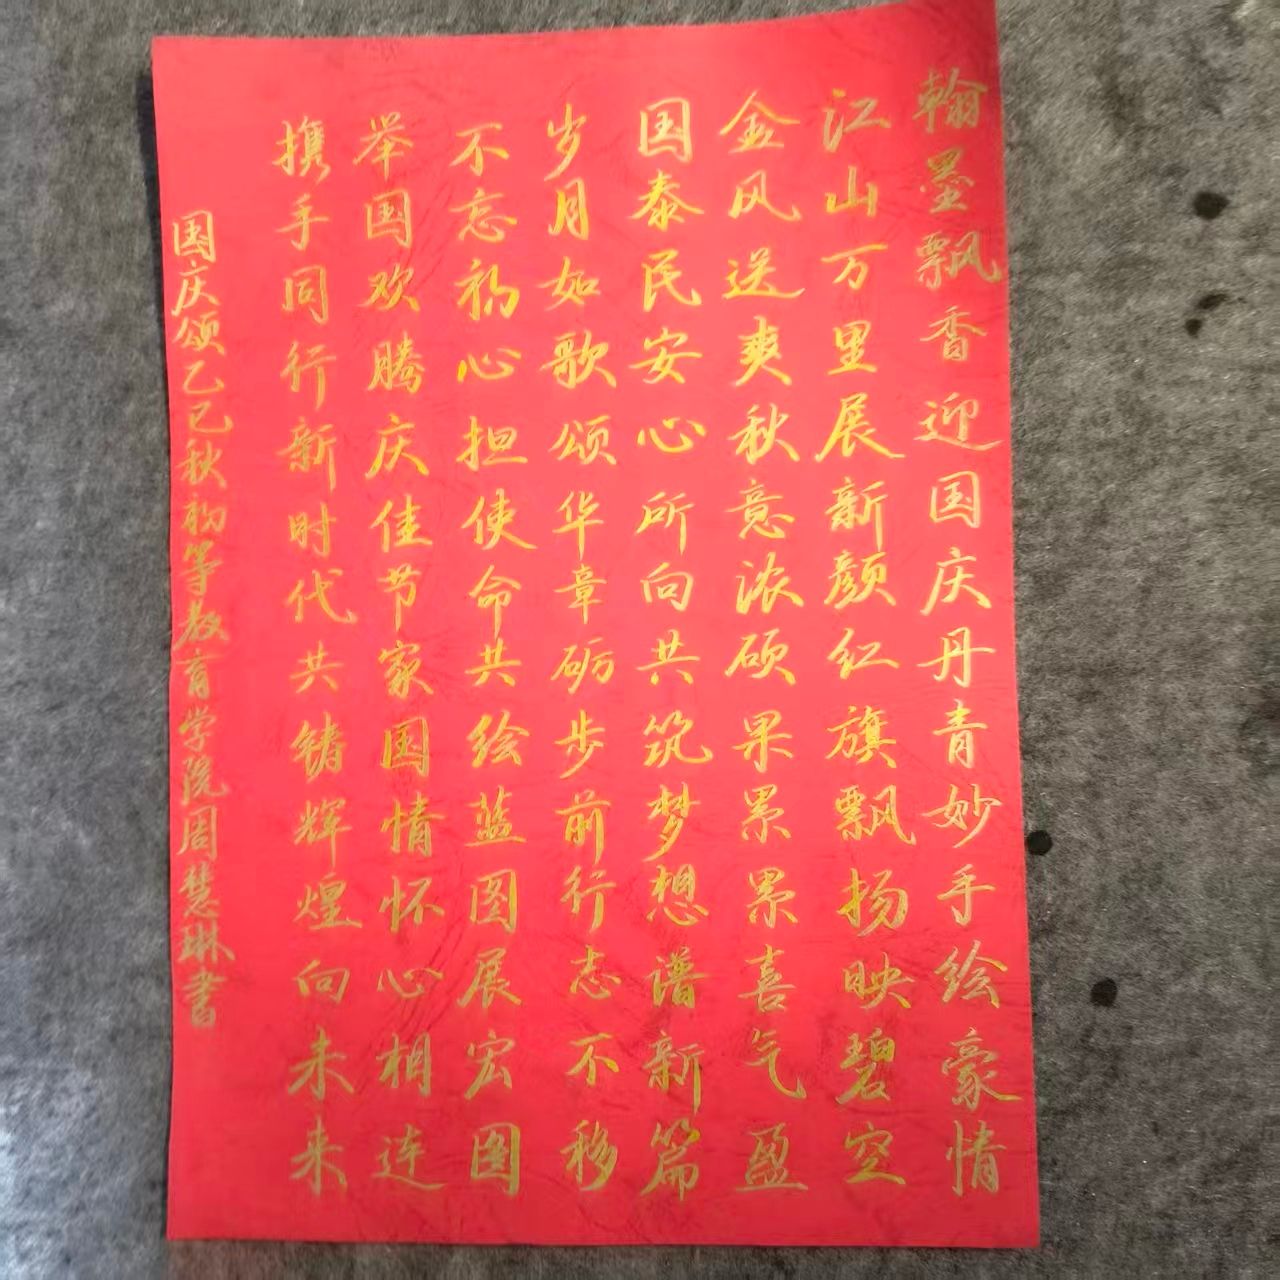 翰墨飘香迎国庆丹青妙手绘豪情
江山万里展新颜红旗飘扬映碧空
金风送爽秋意浓硕果累累喜气盈
国泰民安心所向共筑梦想谱新篇
岁月如歌颂华章砺步前行志不移
不忘初心担使命共绘蓝图展宏图
举国欢腾庆佳节家国情怀心相连
携手同行新时代共铸辉煌向未来
国庆颂乙巳秋初等教育学院周慧琳书